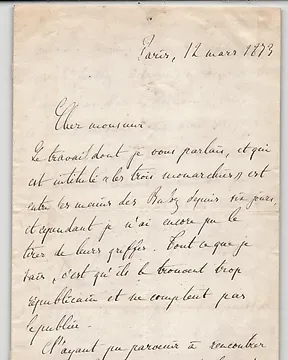 Paris, 12 mars 1873
Cher monsieur
Le travail dont je vous parlais, et qui
est intitulé « les trois monarchies » est
entre les mains des Buloz depuis six jours,
et cependant je n'ai encore pu le
tirer de leurs griffes. Tout ce que je
sais, c'est qu'ils le trouvent trop
républicain et ne comptent pas
le publier.
N'ayant pu parvenir à rencontrer